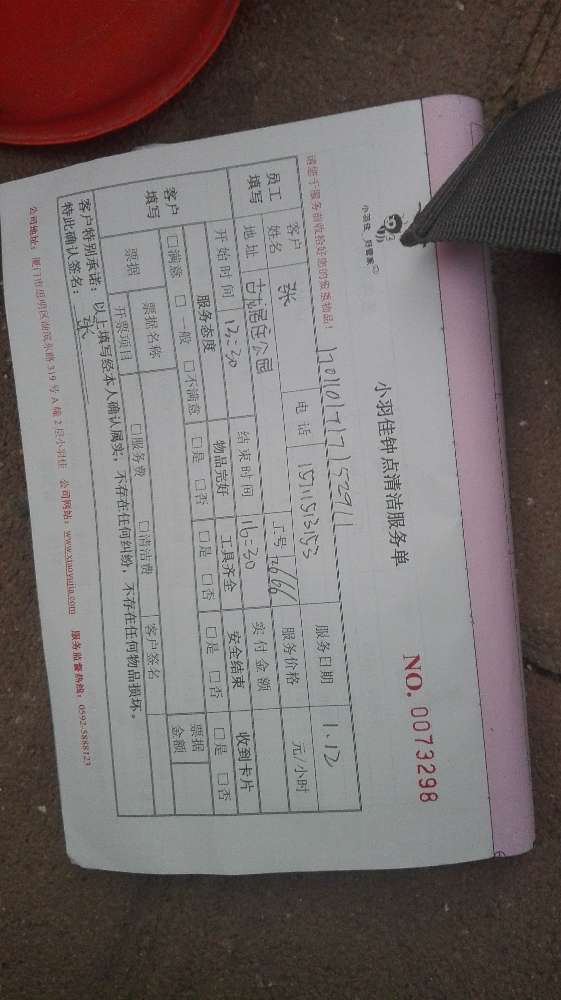 小羽佳 好管家
小羽佳钟点清洁服务单
NO. 0073298
请您于服务前收捡好您的贵重物品!
员工填写 客户姓名 张 电话 工号 服务日期 1.12
服务价格 元/小时
地址 实付金额
开始时间 13:30 结束时间 16:30
客户填写 服务态度 物品完好 工具齐全 安全结束 收到卡片
□满意 □一般 □不满意 □是 □否 □是 □否 □是 □否 □是 □否
票据 票据名称 □服务费 □清洁费 客户签名 票据金额
开票项目
客户特别承诺:以上填写经本人确认属实,不存在任何纠纷,不存在任何物品损坏。
特此确认签名:张
公司地址:厦门市思明区湖滨东路319号A幢2层小羽佳 公司网站:www.xiaoyujia.com 服务监督热线:0592-5888123